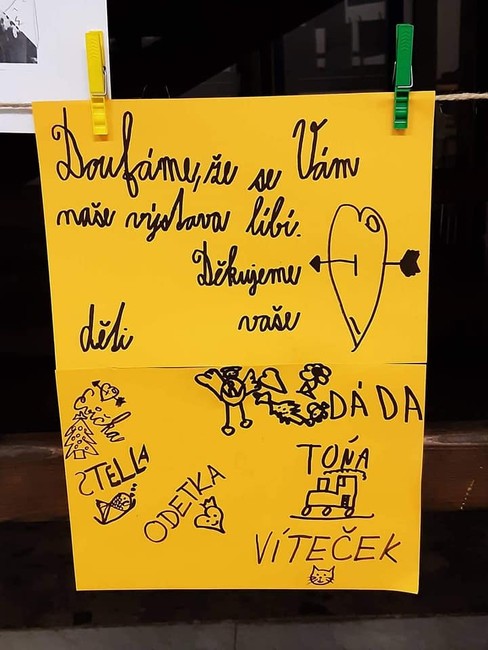 Doufáme, že se Vám
naše výstava líbí.
Děkujeme
vaše
děti
DÁDA
Evička
STELLA
TOŇA
ODETKA
VÍTEČEK